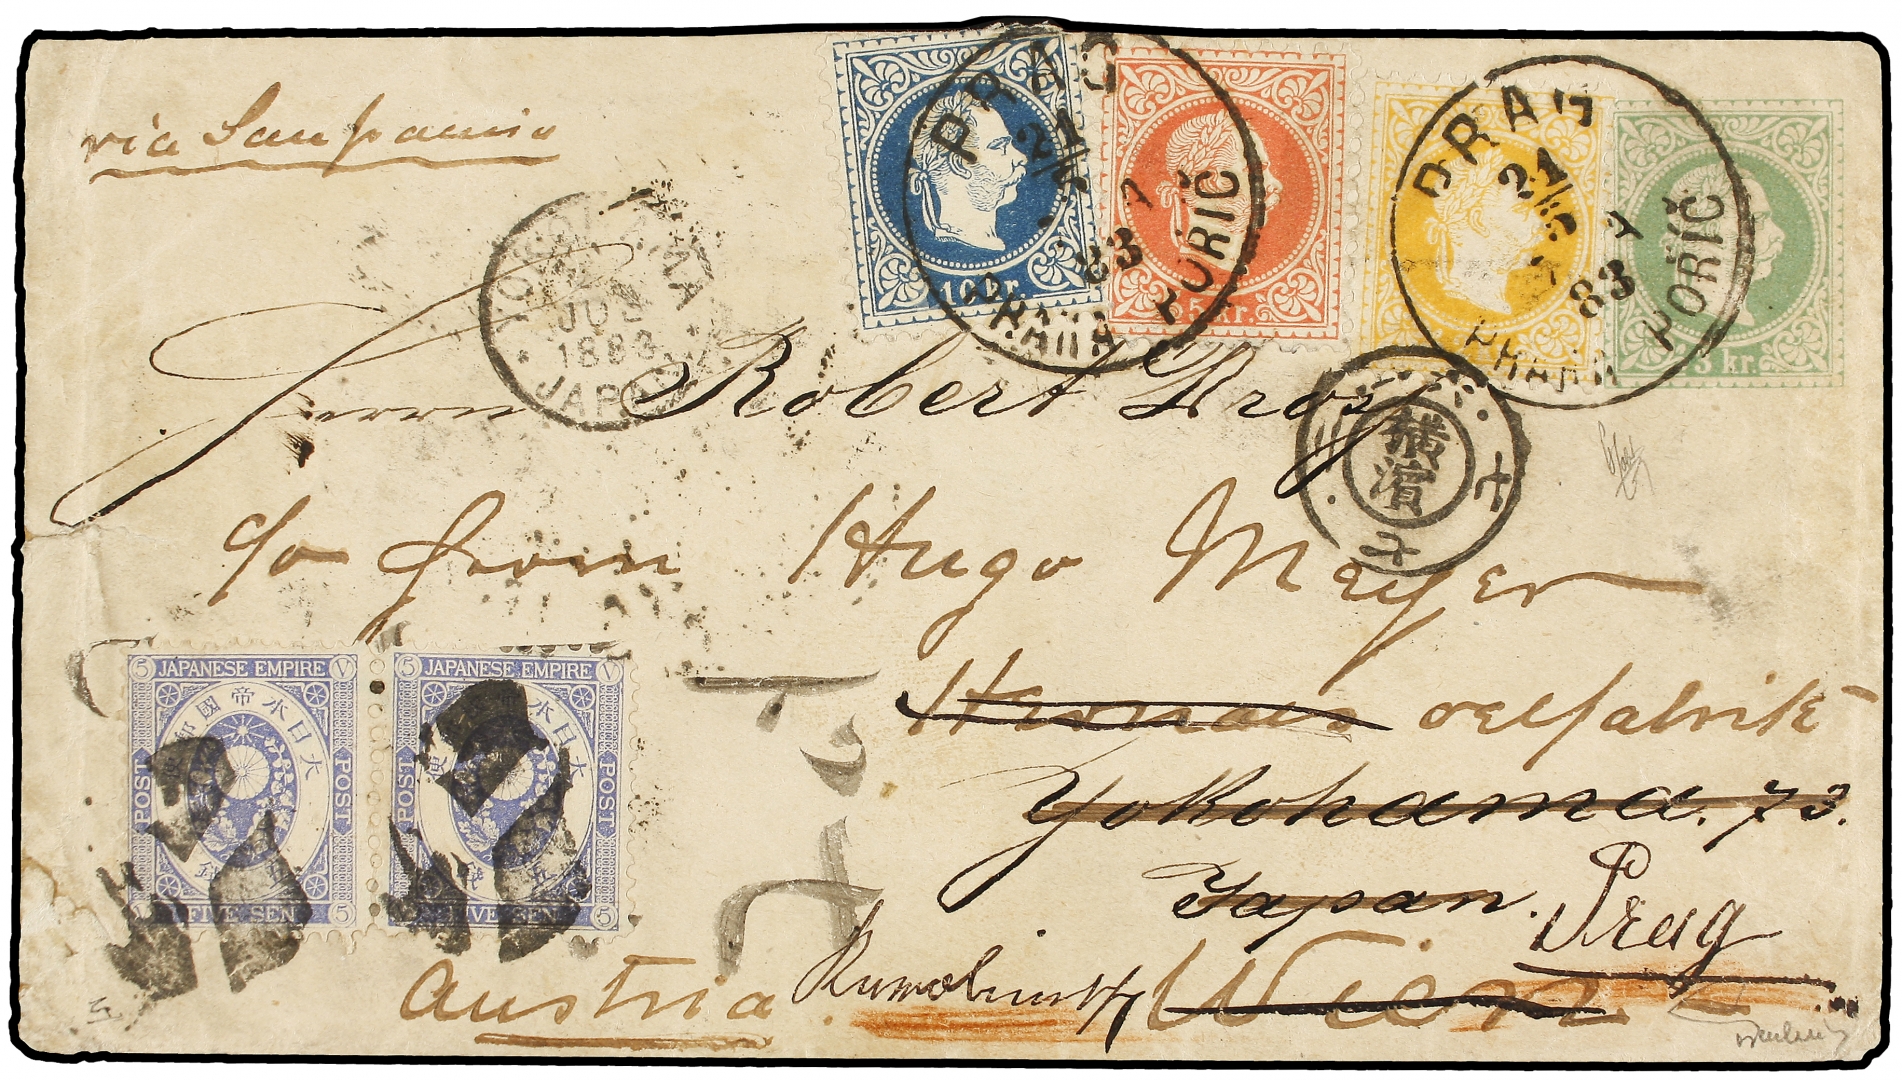 via San francisco
PRAG
21/5
83
PRAHA POŘÍČ
10 kr.
5 kr.
PRAG
21/5
83
PRAHA POŘÍČ
3 kr.
YOKOHAMA
JUL
1883
JAPAN
Herrn Robert
横濱
c/o from Hugo Meyer
oelfabrik
Yokohama. 73.
Japan.
Prag
Austria
Wien
5 JAPANESE EMPIRE V
大日本帝國郵便
POST POST
五錢
FIVE SEN 5
5 JAPANESE EMPIRE V
大日本帝國郵便
POST POST
五錢
FIVE SEN 5